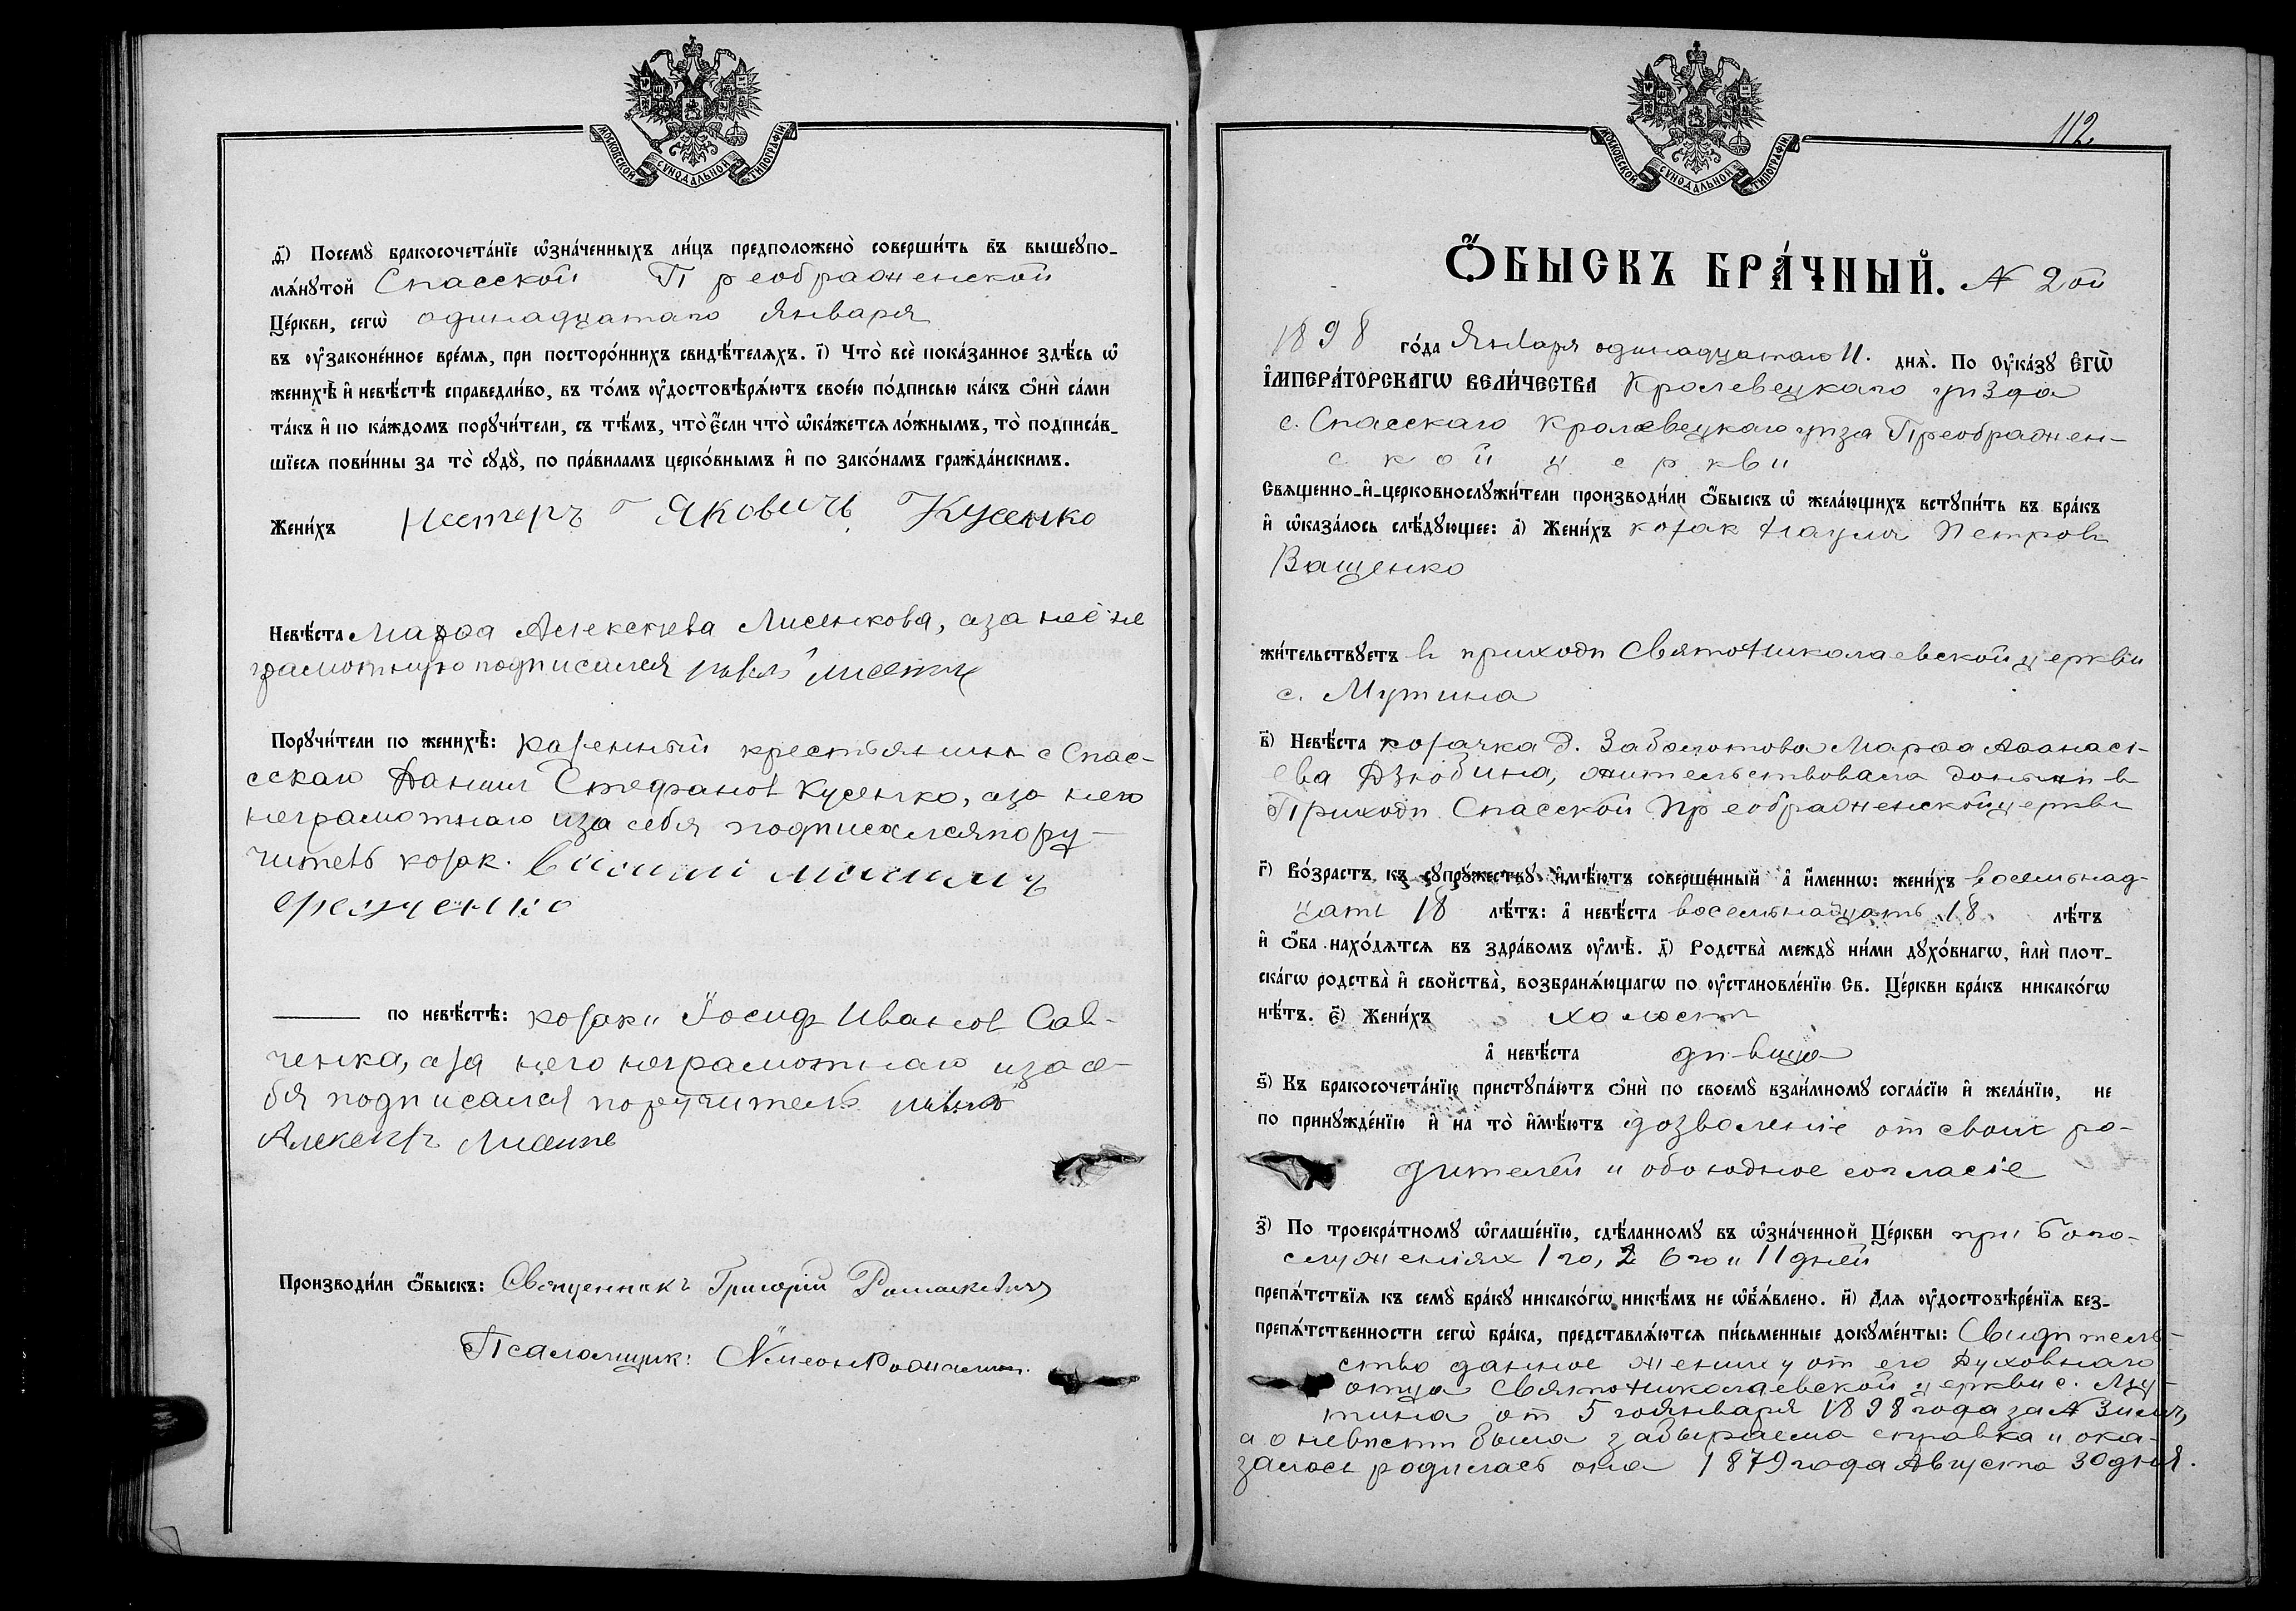 МОСКОВСКОЙ СУНОДАЛЬНОЙ ТИПОГРАФІИ.
д҃) Посемꙋ̀ бракосочета́нїе ѡ҆зна́ченныхъ ли́цъ предположено̀ соверши́ть въ вышеꙋпо-
мѧ́нꙋтой Спасской Преображенской
Це́ркви, сегѡ̀ одинадцатаго Января
въ ᲂу҆законе́нное вре́мѧ, при посторо́ннихъ свидѣ́телѧхъ. і҃) Что̀ всѐ пока́занное здѣ́сь ѡ҆
женихѣ̀ и҆ невѣ́стѣ справедли́во, въ то́мъ ᲂу҆достовѣрѧ́ютъ свое́ю по́дписью ка́къ ѻ҆нѝ са́ми
та́къ и҆ по ка́ждомъ порꙋчи́тели, съ тѣ́мъ, что̀ є҆́сли что̀ ѡ҆ка́жется ло́жнымъ, то̀ подписа́в-
шїеся пови́нны за то̀ сꙋдꙋ̀, по пра́виламъ церко́внымъ и҆ по зако́намъ гражда́нскимъ.
Жени́хъ Нестеръ Яковичъ Кусенко
Невѣ́ста Марѳа Алексѣева Лисенкова, а за неё не
грамотную подписался
Порꙋчи́тели по женихѣ̀: казенный крестьянин с Спас-
сскаго Даниил Стефанов Кусенко, а за него
неграмотнаго и за себя подписался пору-
читель козак.
по невѣ́стѣ: козаки Іосиф Иванов Сав-
ченка, а за него неграмотнаго и за се-
бя подписался поручитель
Производи́ли ѻ҆́быскъ: Священникъ Григорій Ромашкевичъ
Псаломщик:
МОСКОВСКОЙ СУНОДАЛЬНОЙ ТИПОГРАФІИ.
112
Ѻ҆́БЫСКЪ БРА́ЧНЫЙ. № 2ой
1898 го́да Января одинадцатаго 11. днѧ̀. По Оу҆ка́зꙋ Є҆гѡ̀
І҆МПЕРА́ТОРСКАГѠ ВЕЛИ́ЧЕСТВА Кролевецкаго уѣзда
с. Спасскаго Кролевецкаго уѣза Преображен-
ской церкви
Священно-и҆-церковнослꙋжи́тели производи́ли ѻ҆́быскъ ѡ҆ жела́ющихъ встꙋпи́ть въ бра́къ
и҆ ѡ҆каза́лось слѣ́дꙋющее: а҃) Жени́хъ козак Наумъ Петров
Ващенко
жи́тельствꙋетъ в приходѣ СвятоНиколаевской церкви
с. Мутина
в҃) Невѣ́ста козачка д. Заболотова Марѳа Аѳанась-
ева Дзюбина, жительствовала донынѣ в
Приходѣ Спасской Преображенской церкви
г҃) Во́зрастъ къ сꙋпрꙋ́жествꙋ и҆мѣ́ютъ соверше́нный а҆ и҆́менно: жени́хъ восемьнад-
цать 18 лѣ́тъ: а҆ невѣ́ста восемьнадцать 18 лѣ́тъ
и҆ ѻ҆́ба нахо́дятся въ здра́вомъ ᲂу҆мѣ̀. д҃) Родства̀ междꙋ̀ ни́ми дꙋхо́внагѡ, и҆лѝ плот-
ска́гѡ родства̀ и҆ свойства̀, возбранѧ́ющагѡ по ᲂу҆становле́нїю Св. Це́ркви бра́къ никако́гѡ
нѣ́тъ. є҃) Жени́хъ холост
а҆ невѣ́ста дѣвица
ѕ҃) Къ бракосочета́нїю пристꙋпа́ютъ ѻ҆нѝ по своемꙋ̀ взаи́мномꙋ согла́сїю и҆ жела́нїю, не
по принꙋжде́нїю и҆ на то̀ и҆мѣ́ютъ дозволеніе от своих ро-
дителей и обоюдное согласіе
з҃) По троекра́тномꙋ ѡ҆глаше́нїю, сдѣ́ланномꙋ въ ѡ҆зна́ченной Це́ркви при Бого-
служеніях 1го, 6го и 11 дней
препѧ́тствїѧ къ семꙋ̀ бра́кꙋ никако́гѡ никѣ́мъ не ѡ҆б̾ѧ́влено. и҃) Для ᲂу҆достовѣре́нїѧ без-
препѧ́тственности сегѡ̀ бра́ка, представлѧ́ются пи́сьменные докꙋме́нты: Свидѣтель-
ство данное жениху от его Духовнаго
отца СвятоНиколаевской церкви с. Му-
тина от 5 го января 1898 года за №
а о невѣсте была забыраема справка и ока-
залось родилась она 1879 года Августа 30 дня.